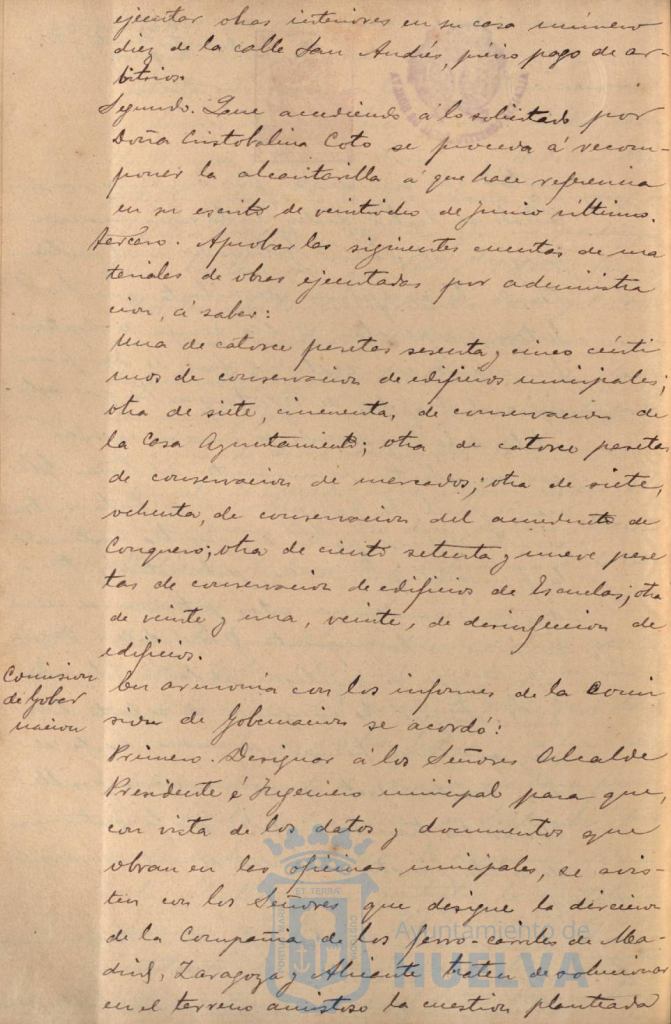 ejecutar obras interiores en su casa número
diez de la calle San Andrés, previo pago de ar-
bitrios.
Segundo. Que accediendo á lo solicitado por
Doña Cristobalina Coto se proceda á recom-
poner la alcantarilla á que hace referencia
en su escrito de veintidos de Junio último.
tercero. Aprobar las siguientes cuentas de ma
teriales de obras ejecutadas por administra
cion, á saber:
Una de catorce pesetas sesenta y cinco cénti
mos de conservacion de edificios municipales;
otra de siete, cincuenta, de conservacion de
la Casa Ayuntamiento; otra de catorce pesetas
de conservacion de mercados; otra de siete,
ochenta, de conservacion del acueducto de
Conquero; otra de ciento setenta y nueve pese
tas de conservacion de edificios de Escuelas; otra
de veinte y una, veinte, de desinfeccion de
edificios.
Comision
de Gober
nacion
En armonía con los informes de la Comi
sion de Gobernacion se acordó:
Primero. Designar á los Señores Alcalde
Presidente é Ingeniero municipal para que,
con vista de los datos y documentos que
obran en las oficinas municipales, se avis-
ten con los Señores que designe la direccion
de la Compañia de los ferro-carriles de Ma-
drid, Zaragoza y Alicante traten de solucionar
en el terreno amistoso la cuestion planteada
Ayuntamiento de
HUELVA